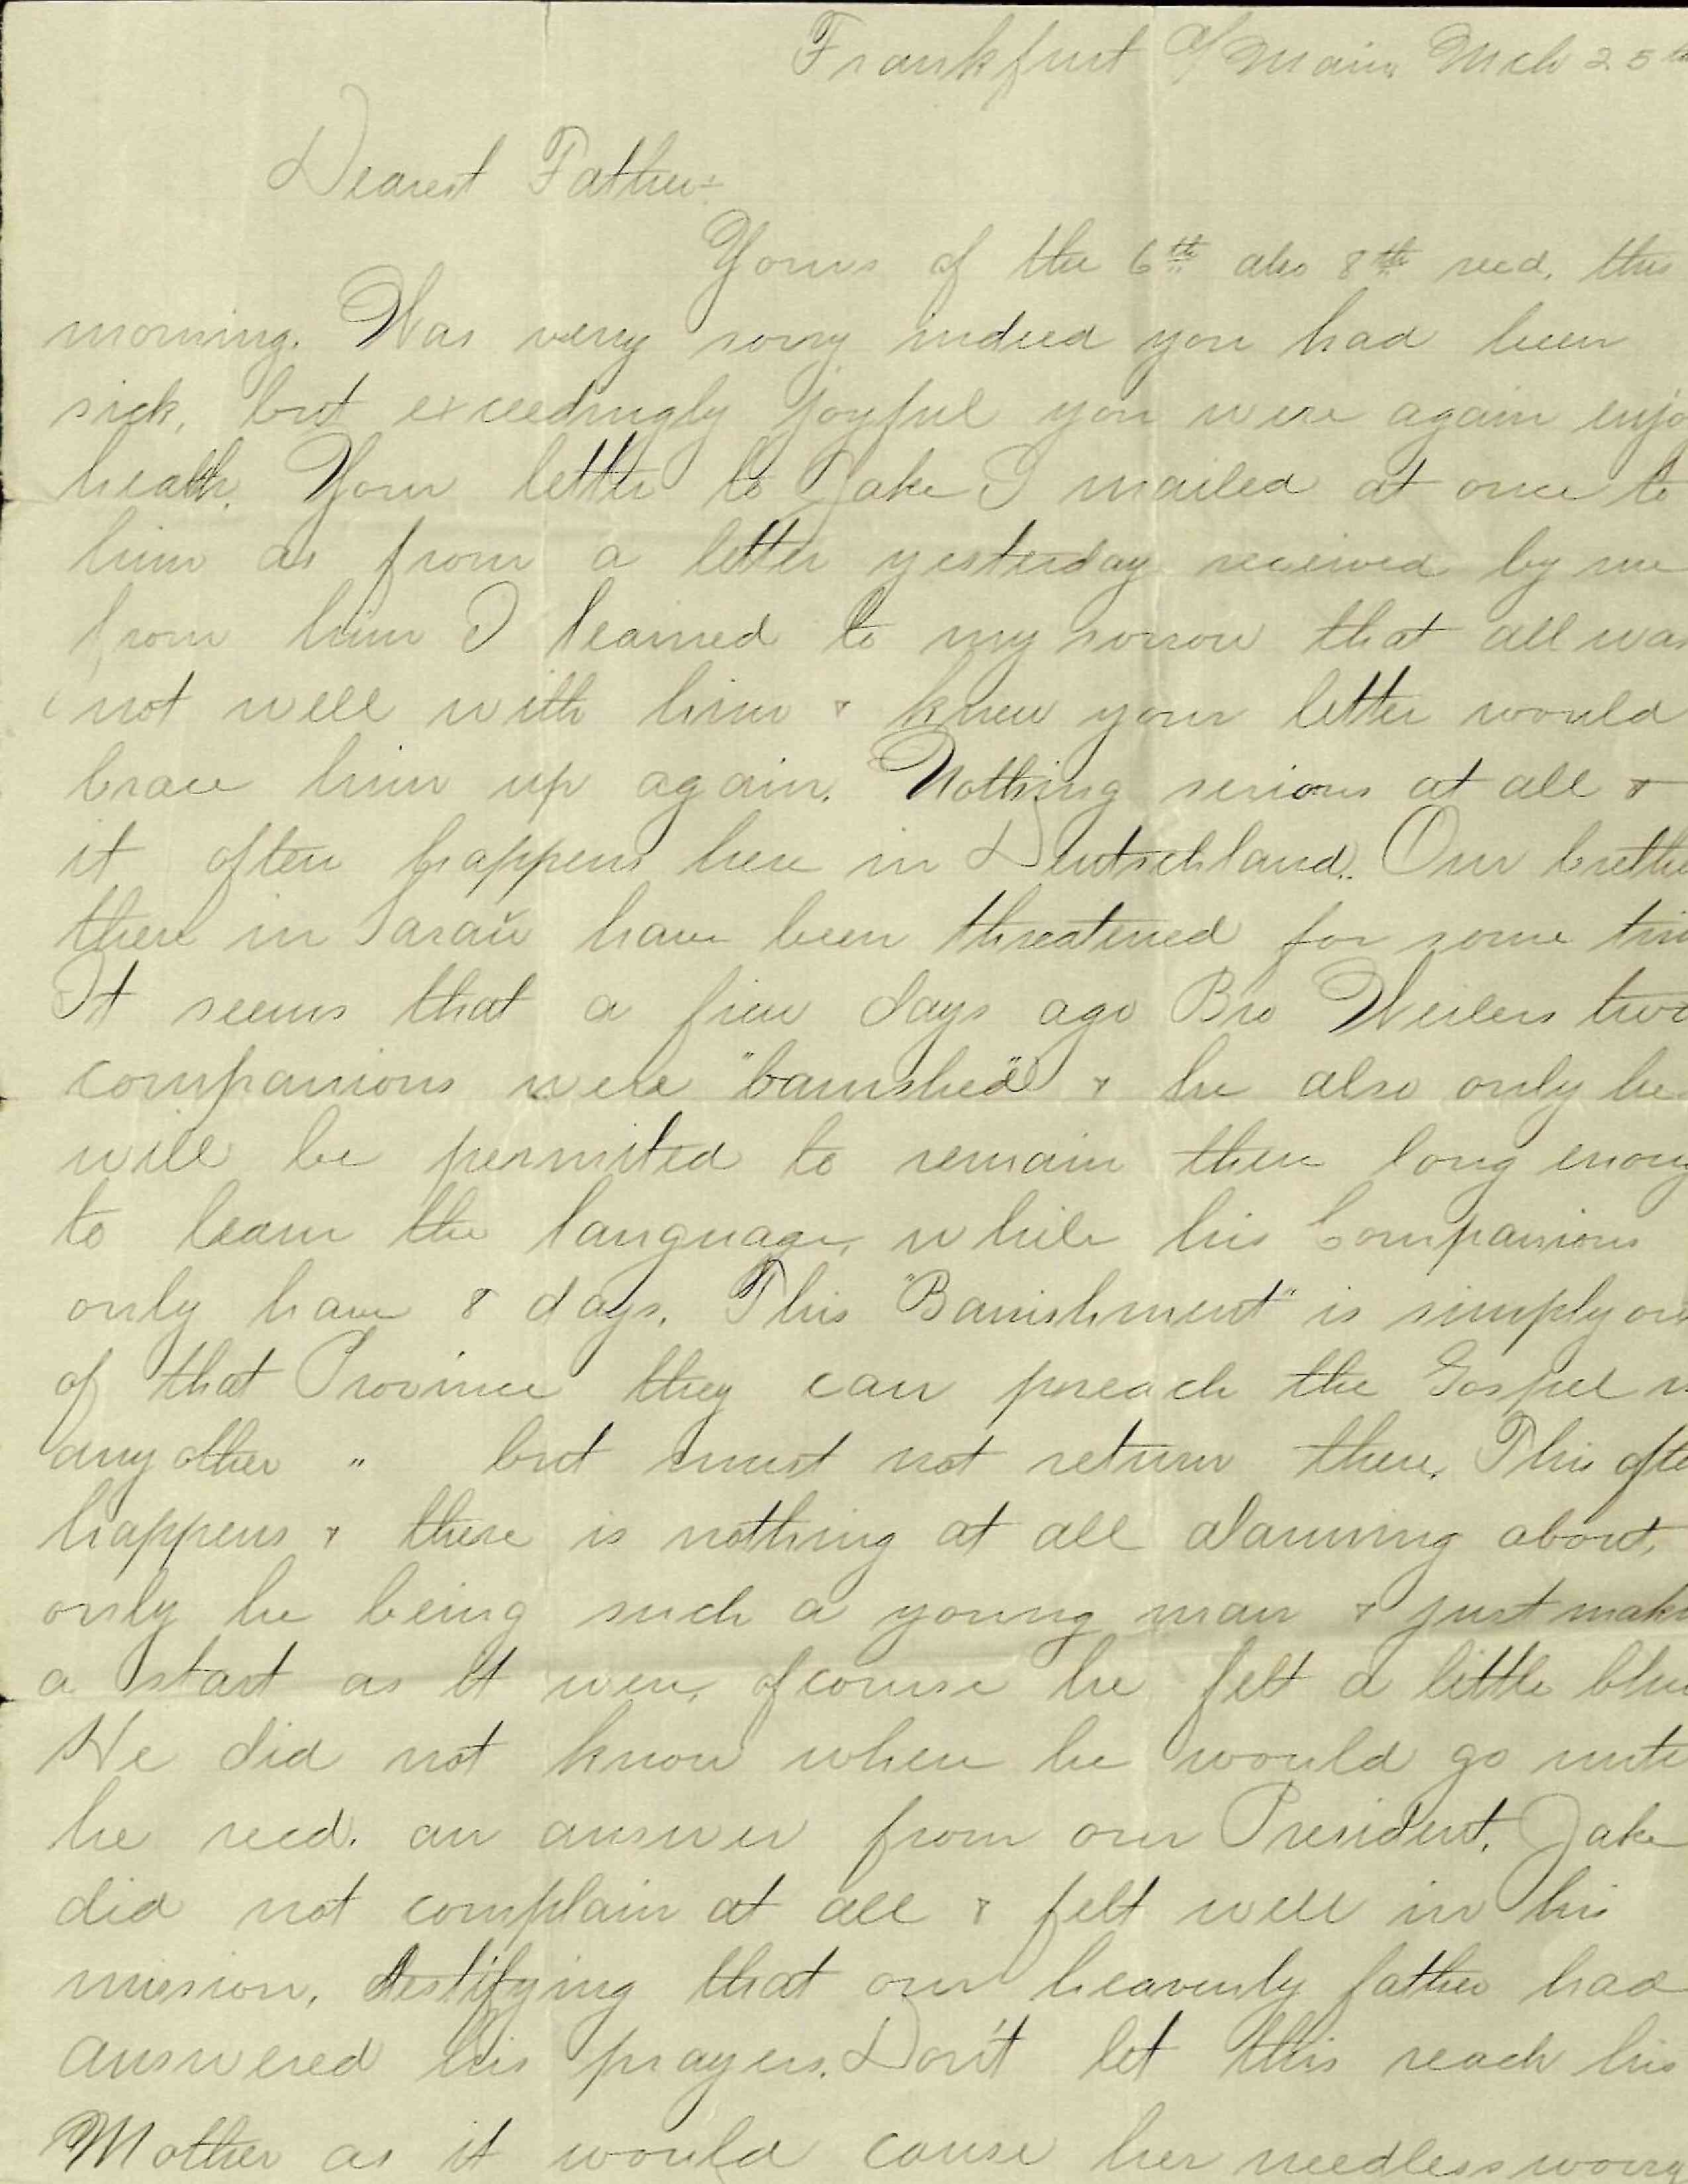 Frankfurt a/ Main Mch 25th
Dearest Father:
Yours of the 6th also 8th recd. this
morning. Was very sorry indeed you had been
sick, but exceedingly joyful you were again enjo
health. Your letter to Jake I mailed at once to
him as from a letter yesterday received by me
from him I learned to my sorrow that all was
not well with him & knew your letter would
brace him up again. Nothing serious at all &
it often happens here in Deutschland. Our breth
there in have been threatened for some tim
It seems that a few days ago Bro Weilers two
companions were "banished" & he also only he
will be permitted to remain there long enoug
to learn the language, while his Companions
only have 8 days. This "Banishment" is simply ou
of that Province they can preach the Gospel in
any other " but must not return there. This ofte
happens & there is nothing at all alarming about,
only he being such a young man & just makin
a start as it were, of course he felt a little blue
He did not know where he would go unti
he recd. an answer from our President. Jake
did not complain at all & felt well in his
mission, testifying that our heavenly father had
answered his prayers. Don't let this reach his
Mother as it would cause her needless worry